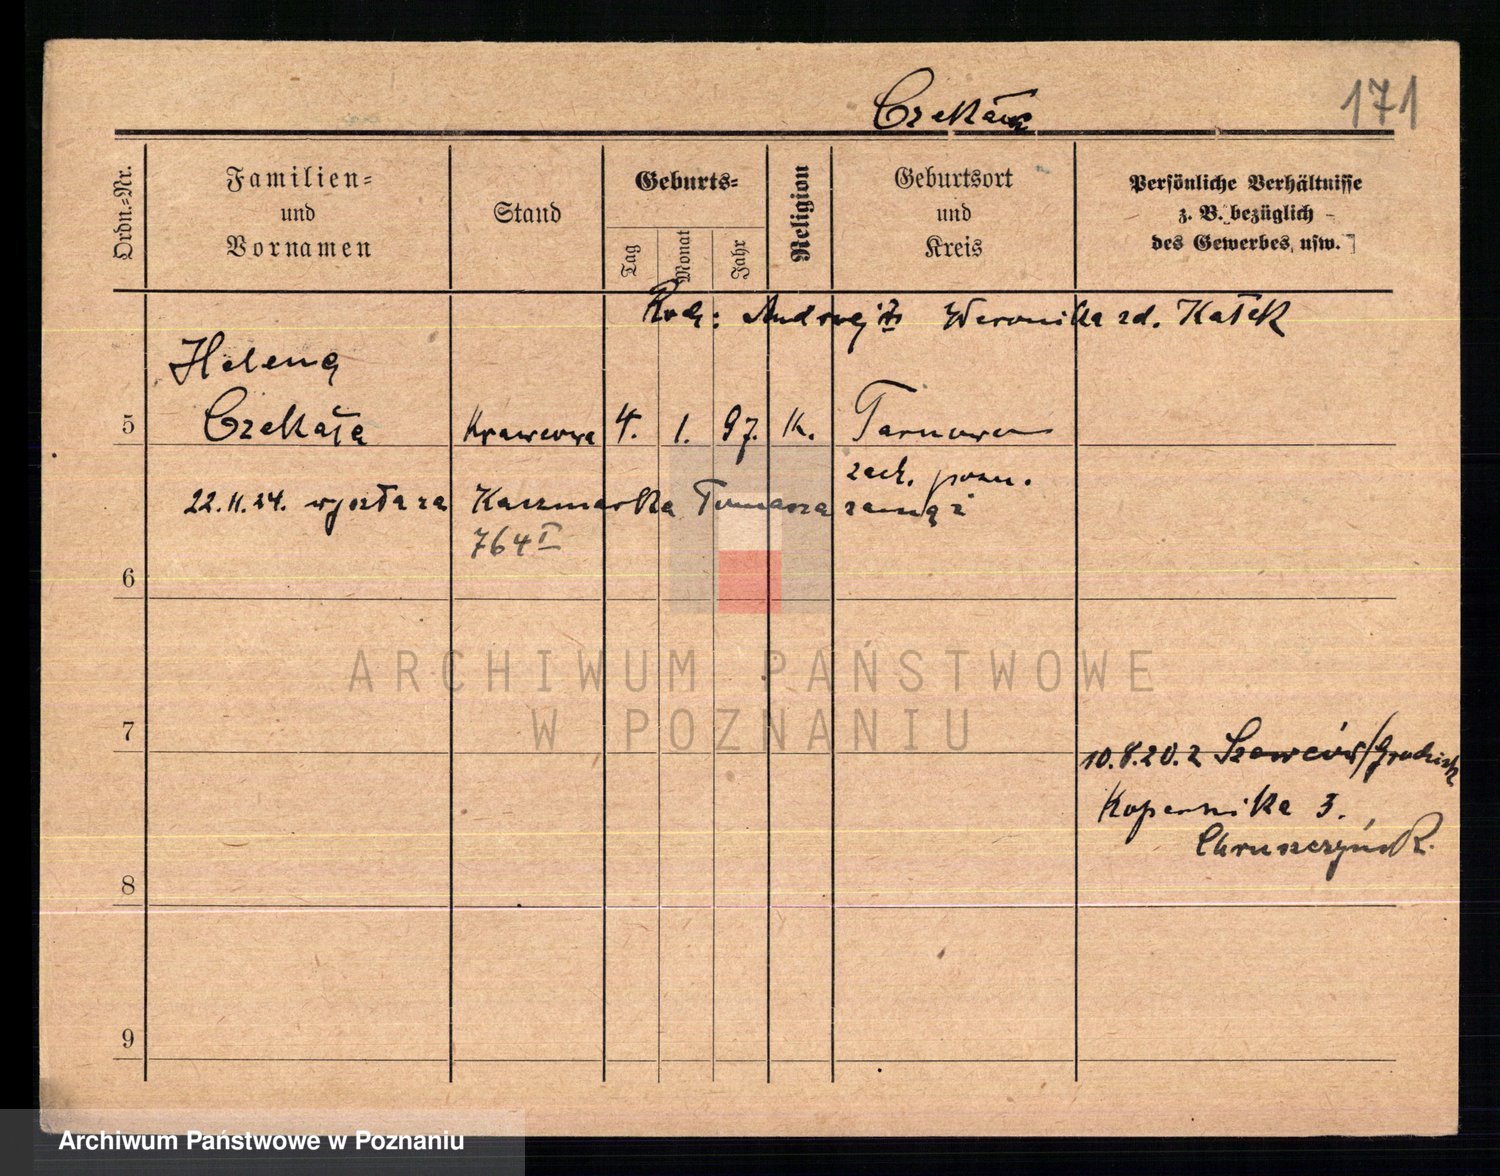 171
Ordn.-Nr.
Familien-
und
Vornamen
Stand
Geburts-
Tag
Monat
Jahr
Religion
Geburtsort
und
Kreis
Persönliche Verhältnisse
z. B. bezüglich
des Gewerbes, usw.
Rodz: Andrzej i Weronika zd. Kałek
Helena
5 Czekała Krawcowa 4. 1. 97. K. Tarnowo
zach. pozn.
22.11.24. wyszła za Kaczmarka Tomasza zamąż
764 I
6
7
10.8.20. z Szewców/Grodzisk
Kopernika 3.
8
9
ARCHIWUM PAŃSTWOWE
W POZNANIU
Archiwum Państwowe w Poznaniu